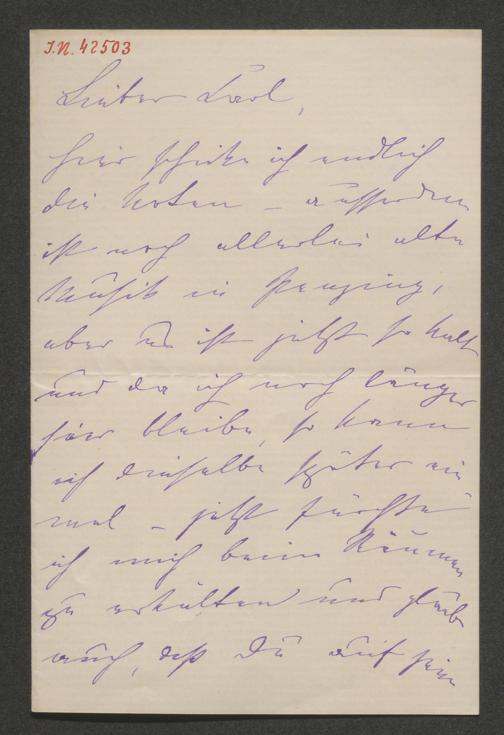 I.N. 42503
Lieber Carl,
hier schicke ich endlich
die Noten – ausserdem
ist noch allerlei alte
Musik in Penzing,
aber es ist jetzt so kalt
und da ich noch länger
hier bleibe, so kann
ich dieselbe später ein
mal – jetzt fürchte
ich mich beim Räumen
zu erkälten und glaube
auch, daß Du auf